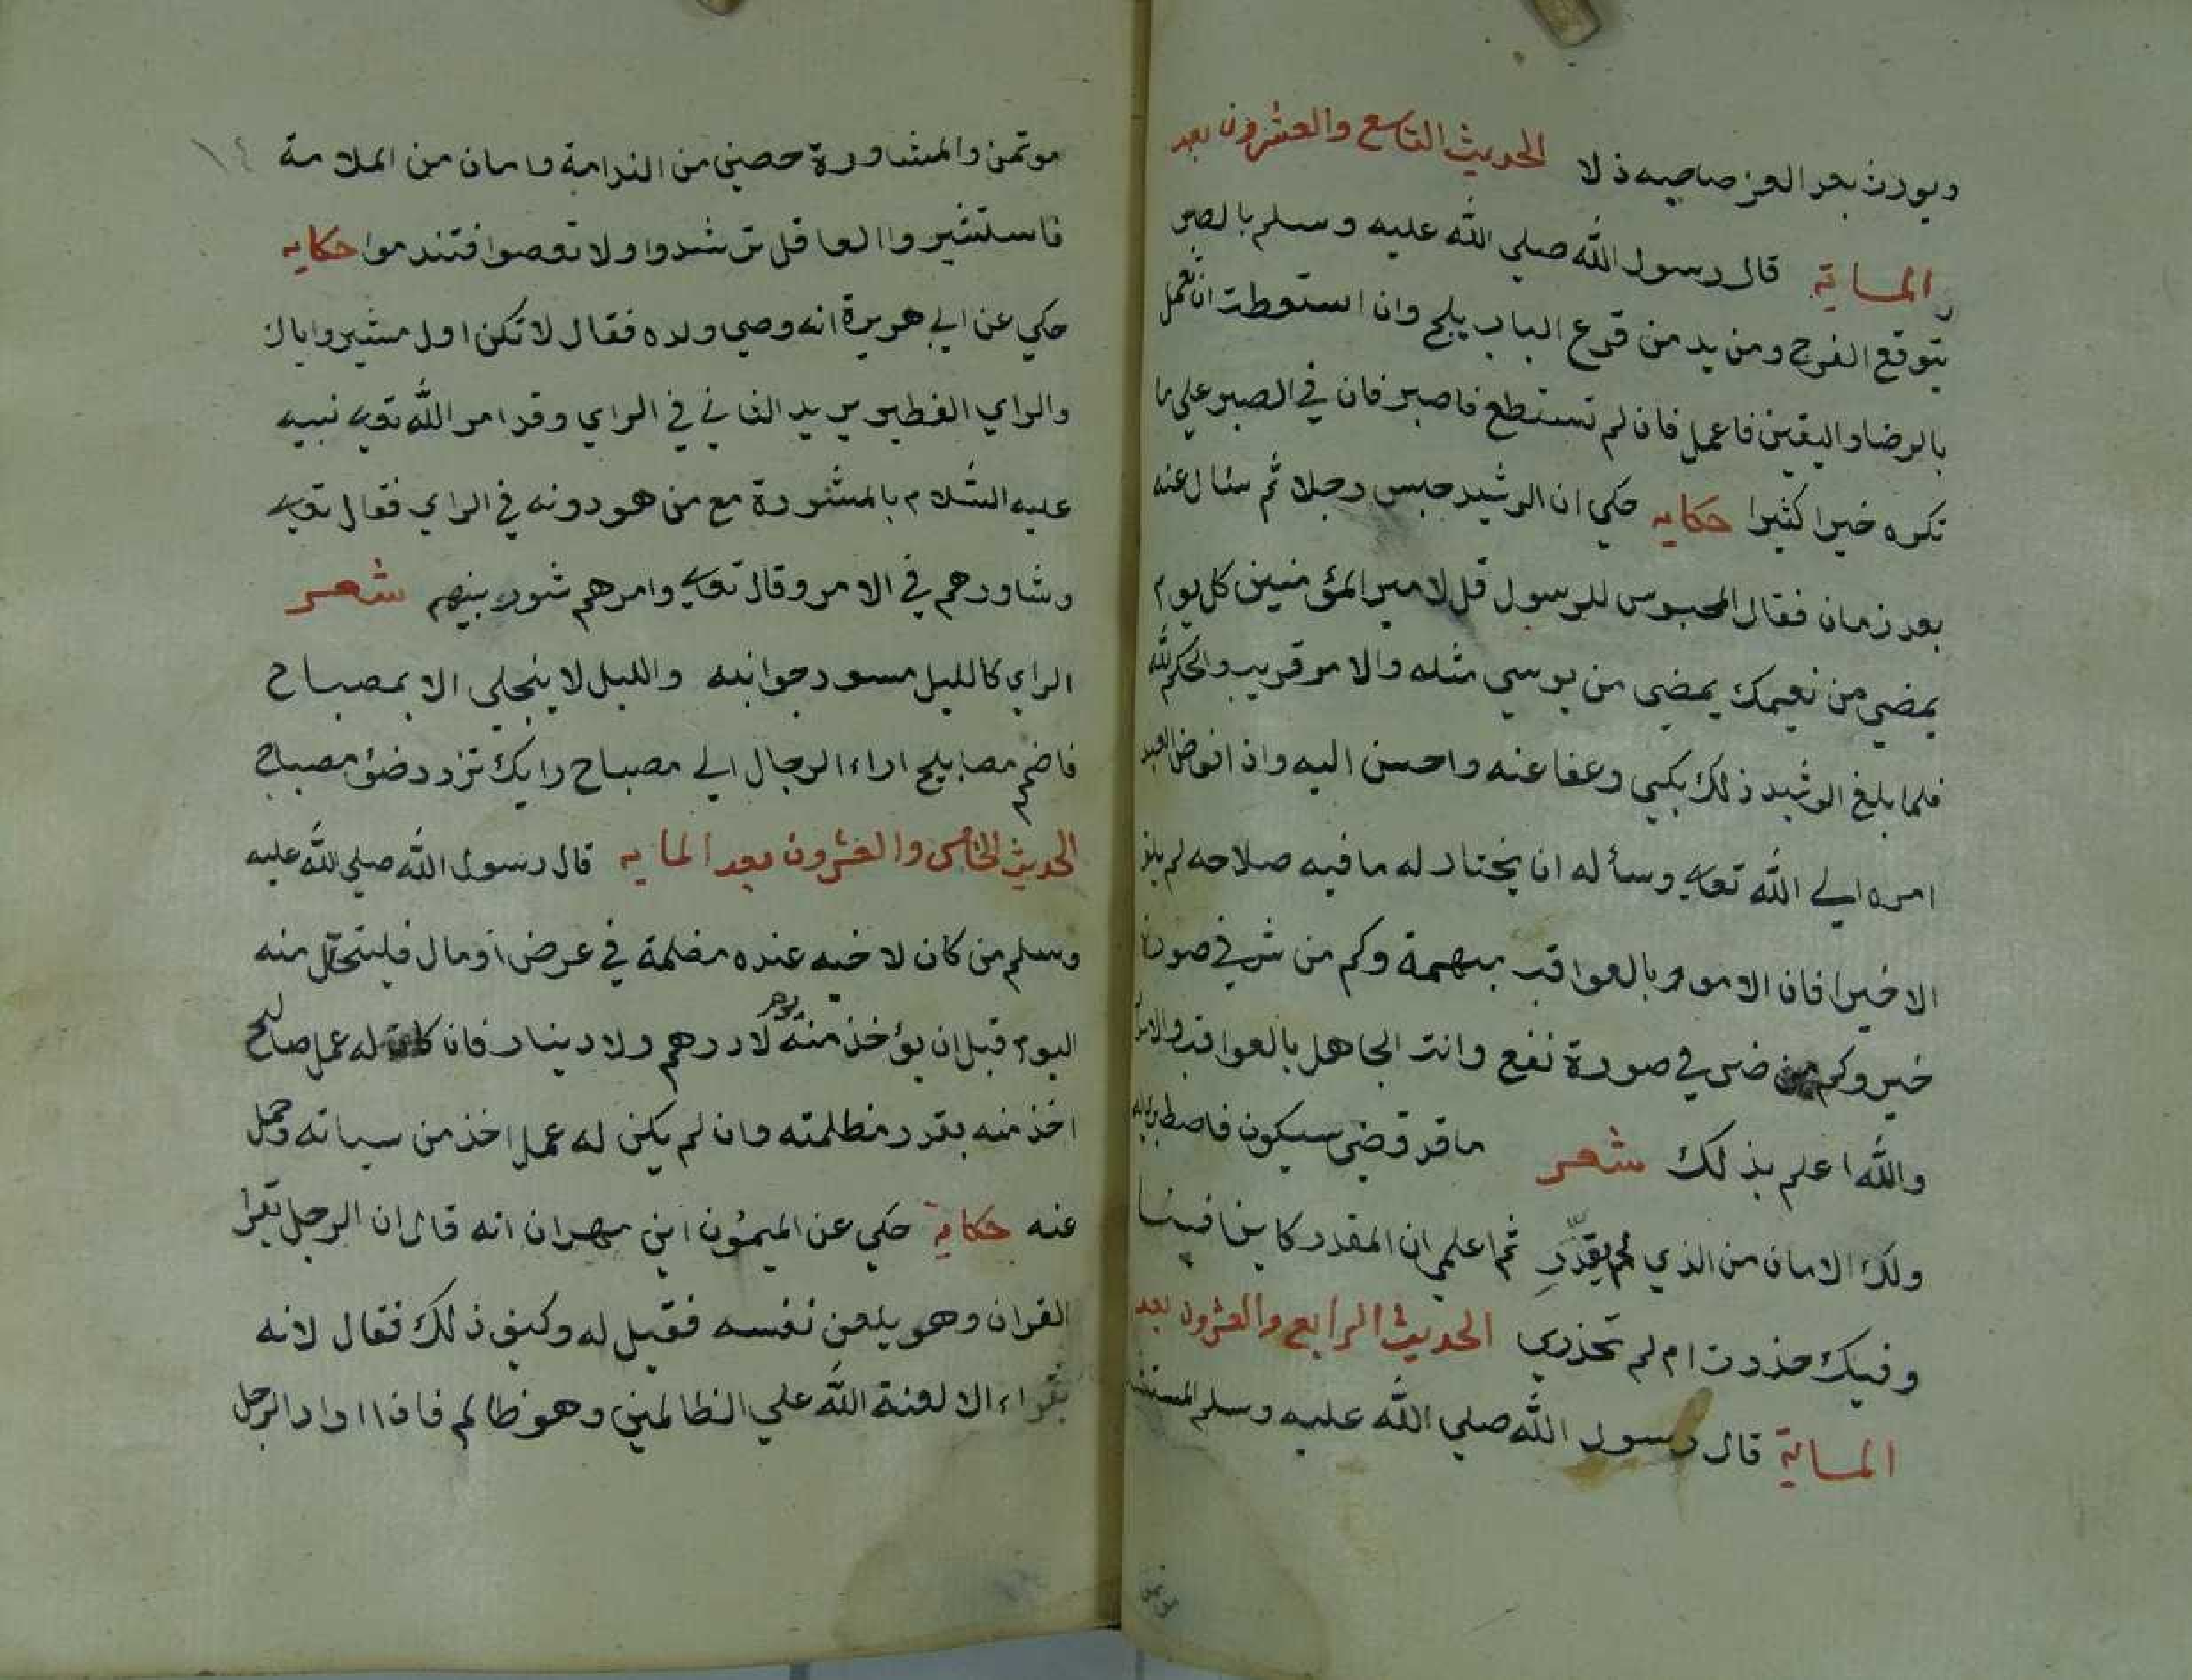 ويورث بعد العز صاحبه ذلا الحديث التاسع والعشرون بعد
الماية قال رسول الله صلي الله عليه وسلم بالصبر
يتوقع الفرج ومن يدمن قرع الباب يلج وان استوطت ان تعمل
بالرضا واليقين فاعمل فان لم تستطع فاصبر فان في الصبر علي ما
تكره خيرا كثيرا حكايه حكي ان الرشيد حبس رجلا ثم سئال عنه
بعد زمان فقال المحبوس للرسول قل لامير المؤمنين كل يوم
يمضي من نعيمك يمضي من بوسي مثله والامر قريب والحكم لله
فلما بلغ الرشيد ذلك بكي وعفا عنه واحسن اليه واذا فوض العبد
امره الي الله تعالي وسأله ان يختار له ما فيه صلاحه لم يلق
الا خيرا فان الامور بالعواقب مبهمة وكم من شر في صورة
خير وكم من ضر في صورة نفع وانت الجاهل بالعواقب
والله اعلم بذلك شعر ما قد قضي سيكون فاصطبر له
ولك الامان من الذي لم يقدر ثم اعلمي ان المقدر كاينا فينا
وفيك حذرت ام لم تحذري الحديث الرابع والعشرون بعد
الماية قال رسول الله صلي الله عليه وسلم المستشار
موتمن والمشاورة حصني من الندامة وامان من الملامة
فاستشيروا العاقل ترشدوا ولا تعصوا فتندموا حكايه
حكي عن ابي هريرة انه وصي ولده فقال لا تكن اول مشير واياك
والراي الفطير يريد الفاني في الراي وقد امر الله تعالي نبيه
عليه السلام بالمشورة مع من هو دونه في الراي فقال تعالي
وشاورهم في الامر وقال تعالي وامرهم شوري بينهم شعر
الراي كالليل مسود جوانبه والليل لا ينجلي الا بمصباح
فاضمم مصابيح اراء الرجال الي مصباح رايك تزدد ضؤ مصباح
الحديث الخامس والعشرون بعد الماية قال رسول الله صلي الله عليه
وسلم من كان لاخيه عنده مضلمة في عرض او مال فليتحلل منه
اليوم قبل ان يؤخذ منه يوم لا درهم ولا دينار فان كان له عمل صالح
اخذ منه بقدر مظلمته وان لم يكن له عمل اخذ من سياته وحمل
عنه حكاية حكي عن الميمون ابن مهران انه قال ان الرجل يقرا
القران وهو يلعن نفسه فقيل له وكيف ذلك فقال لانه
يقراء الا لعنة الله علي الظالمين وهو ظالم فاذا اراد الرجل